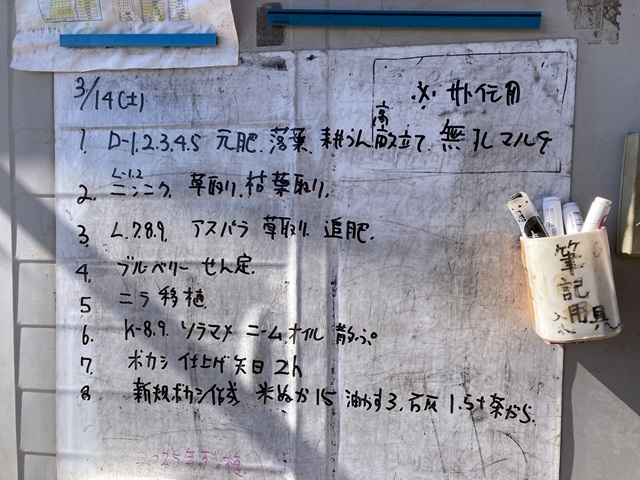 3/14(土)
※ サトイモ用
1. D-1.2.3.4.5 元肥. 落葉. 耕うん 高畝立て. 無孔マルチ
L-1.2
2. ニンニク 草取り. 枯葉取り.
3. L.7.8.9. アスパラ 草取り. 追肥.
4. ブルベリー せん定.
5 ニラ 移植
6. K-8.9. ソラマメ ニームオイル 散ぷ
7. ボカシ 仕上げ 矢日 2h
8 新規ボカシ作成 米ぬか15 油かす3. 石灰 1.5
筆記用具
入れ